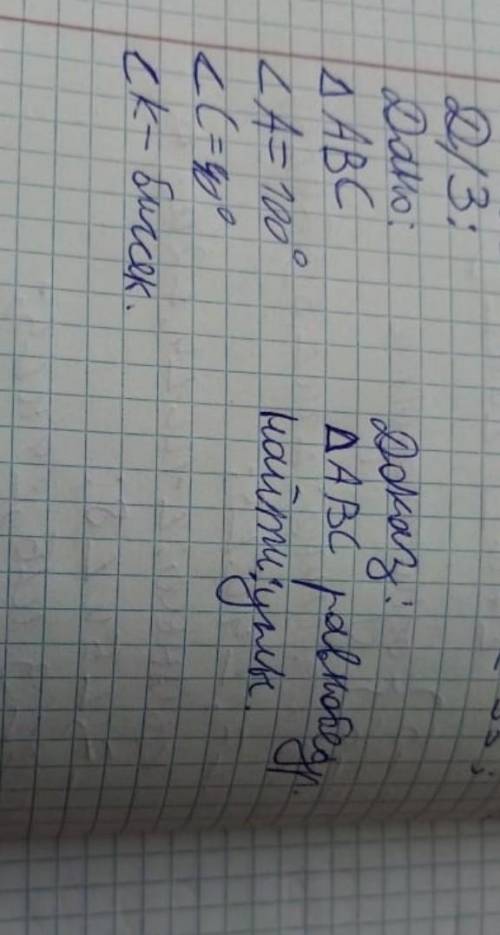 Д/З:
Дано:
△ ABC
< A = 100°
< C = 40°
< K - биссек.
Доказ:
△ ABC равнобедр.
найти: углы.